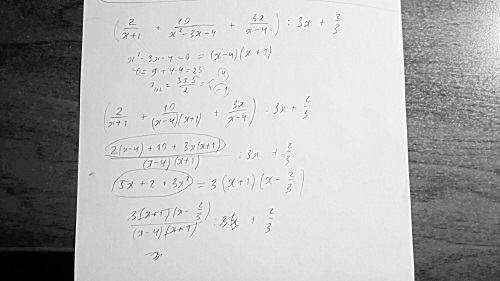 (2/(x+1) + 10/(x²-3x-4) + 3x/(x-4)) : 3x + 2/3
x²-3x-4=0 = (x-4)(x+1)
D = 9+4·4=25
x₁,₂ = (3±5)/2 = 4; -1
(2/(x+1) + 10/((x-4)(x+1)) + 3x/(x-4)) : 3x + 2/3
(2(x-4)+10+3x(x+1))/((x-4)(x+1)) : 3x + 2/3
5x+2+3x² = 3(x+1)(x-2/3)
3(x+1)(x-2/3)/((x-4)(x+1)) : 3x + 2/3